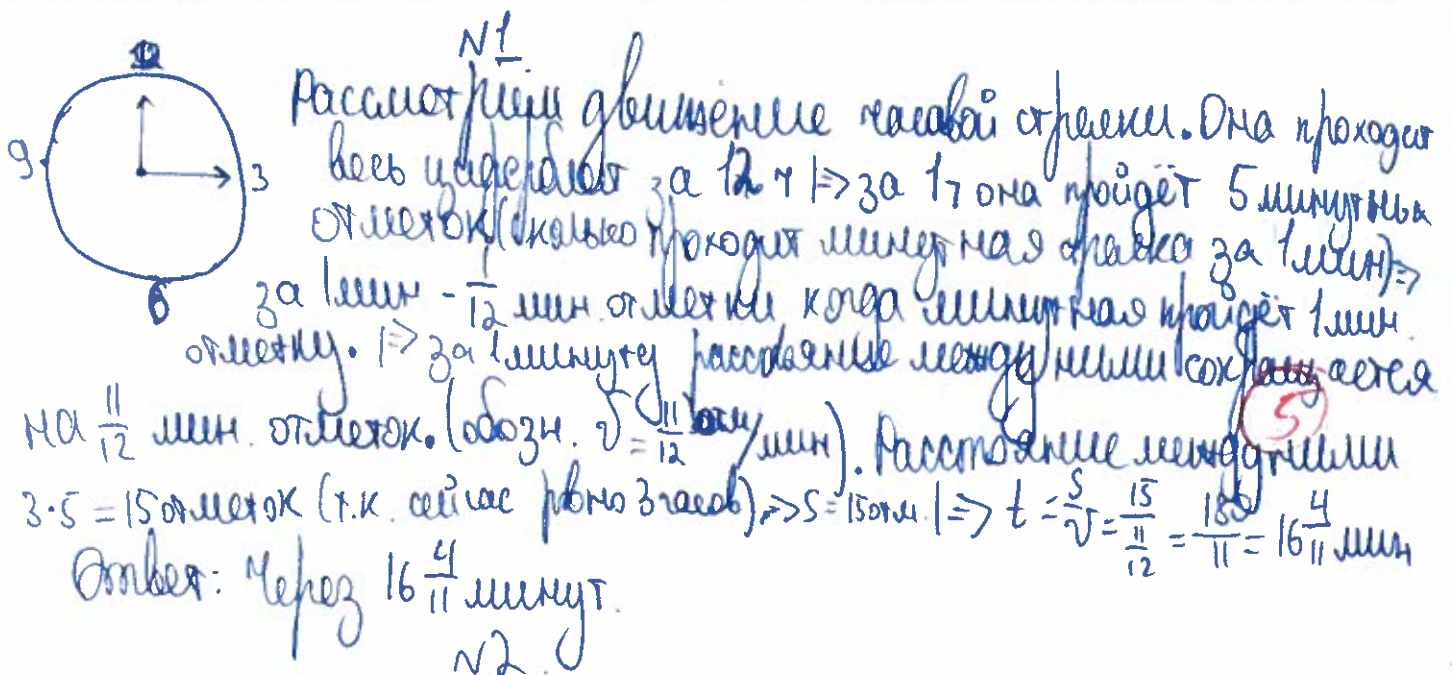 N1
12
9
3
6
Рассмотрим движение часовой стрелки. Она проходит
весь циферблат за 12 ч |=> за 1ч она пройдёт 5 минутных
отметок (сколько проходит минутная стрелка за 1 мин) =>
за 1 мин - 1/12 мин. отметки когда минутная пройдёт 1 мин.
отметку. |=> за 1 минуту расстояние между ними сокращается
на 11/12 мин. отметок. (обозн. v = 11/12 отм/мин). Расстояние между ними
5
3·5 = 15 отметок (т.к. сейчас ровно 3 часов), => S = 15 отм. |=> t = S/v = 15/(11/12) = 180/11 = 16 4/11 мин
Ответ: Через 16 4/11 минут.
N2.